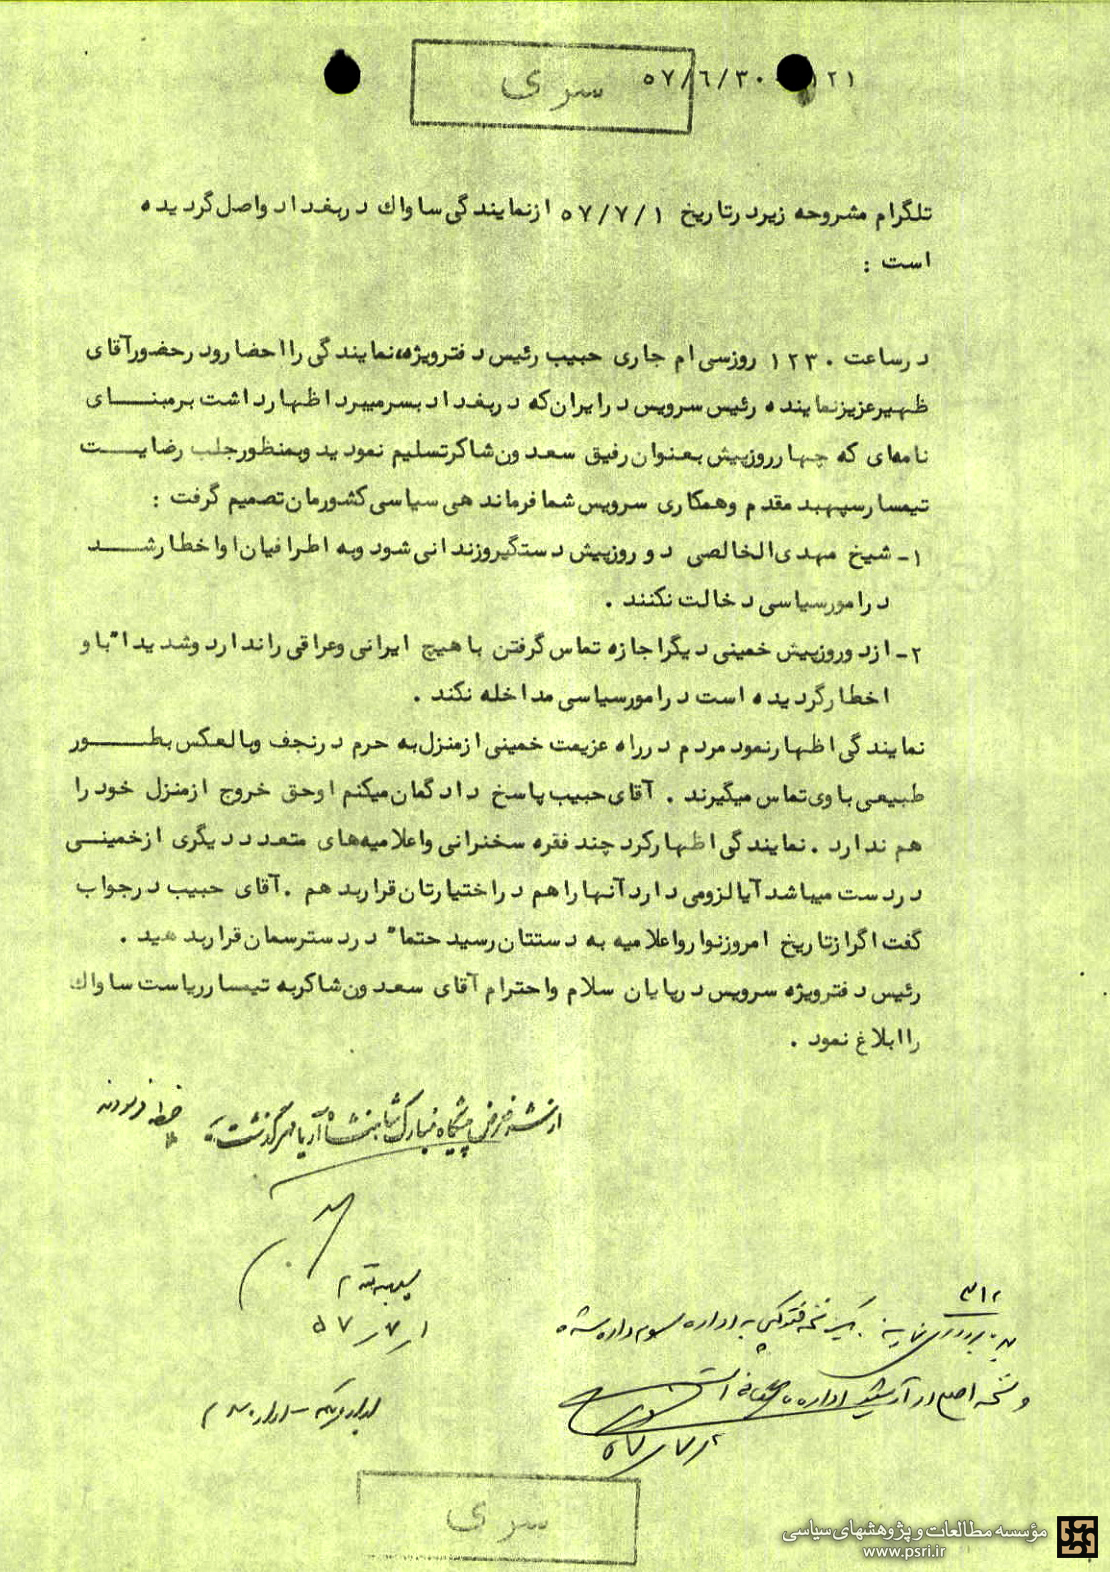 سری
۱۲۱ ۵۷/۶/۳۰
تلگرام مشروحه زیر در تاریخ ۵۷/۷/۱ از نمایندگی ساواك در بغداد واصل گردیده
است :
در ساعت ۱۲۳۰ روز سی ام جاری حبیب رئیس دفتر ویژه، نمایندگی را احضار و در حضور آقای
ظهیر عزیز نماینده رئیس سرویس در ایران که در بغداد بسر میبرد اظهار داشت بر مبنای
نامه‌ای که چهار روز پیش بعنوان رفیق سعدون شاکر تسلیم نمودید و بمنظور جلب رضایت
تیمسار سپهبد مقدم و همکاری سرویس شما فرماندهی سیاسی کشورمان تصمیم گرفت :
۱- شیخ مهدی الخالصی دو روز پیش دستگیر و زندانی شود و به اطرافیان او اخطار شد
در امور سیاسی دخالت نکنند .
۲- از دو روز پیش خمینی دیگر اجازه تماس گرفتن با هیچ ایرانی و عراقی را ندارد و شدیداً با و
اخطار گردیده است در امور سیاسی مداخله نکند .
نمایندگی اظهار نمود مردم در راه عزیمت خمینی از منزل به حرم در نجف و بالعکس بطور
طبیعی با وی تماس میگیرند . آقای حبیب پاسخ داد گمان میکنم او حق خروج از منزل خود را
هم ندارد . نمایندگی اظهار کرد چند فقره سخنرانی و اعلامیه‌های متعدد دیگری از خمینی
در دست میباشد آیا لزومی دارد آنها را هم در اختیارتان قرار بدهم . آقای حبیب در جواب
گفت اگر از تاریخ امروز نوار و اعلامیه به دستتان رسید حتماً در دسترسمان قرار بدهید .
رئیس دفتر ویژه سرویس در پایان سلام و احترام آقای سعدون شاکر به تیمسار ریاست ساواك
را ابلاغ نمود .
از شرف عرض پیشگاه مبارک شاهنشاه آریامهر گذشت
ملاحظه فرمودند
سپهبد مقدم
۵۷/۷/۱
۳۱۲
یک نسخه فتوکپی به اداره سوم داده شد
و نسخه اصل در آرشیو اداره است
۵۷/۷/۲
سری
مؤسسه مطالعات و پژوهشهای سیاسی
www.psri.ir